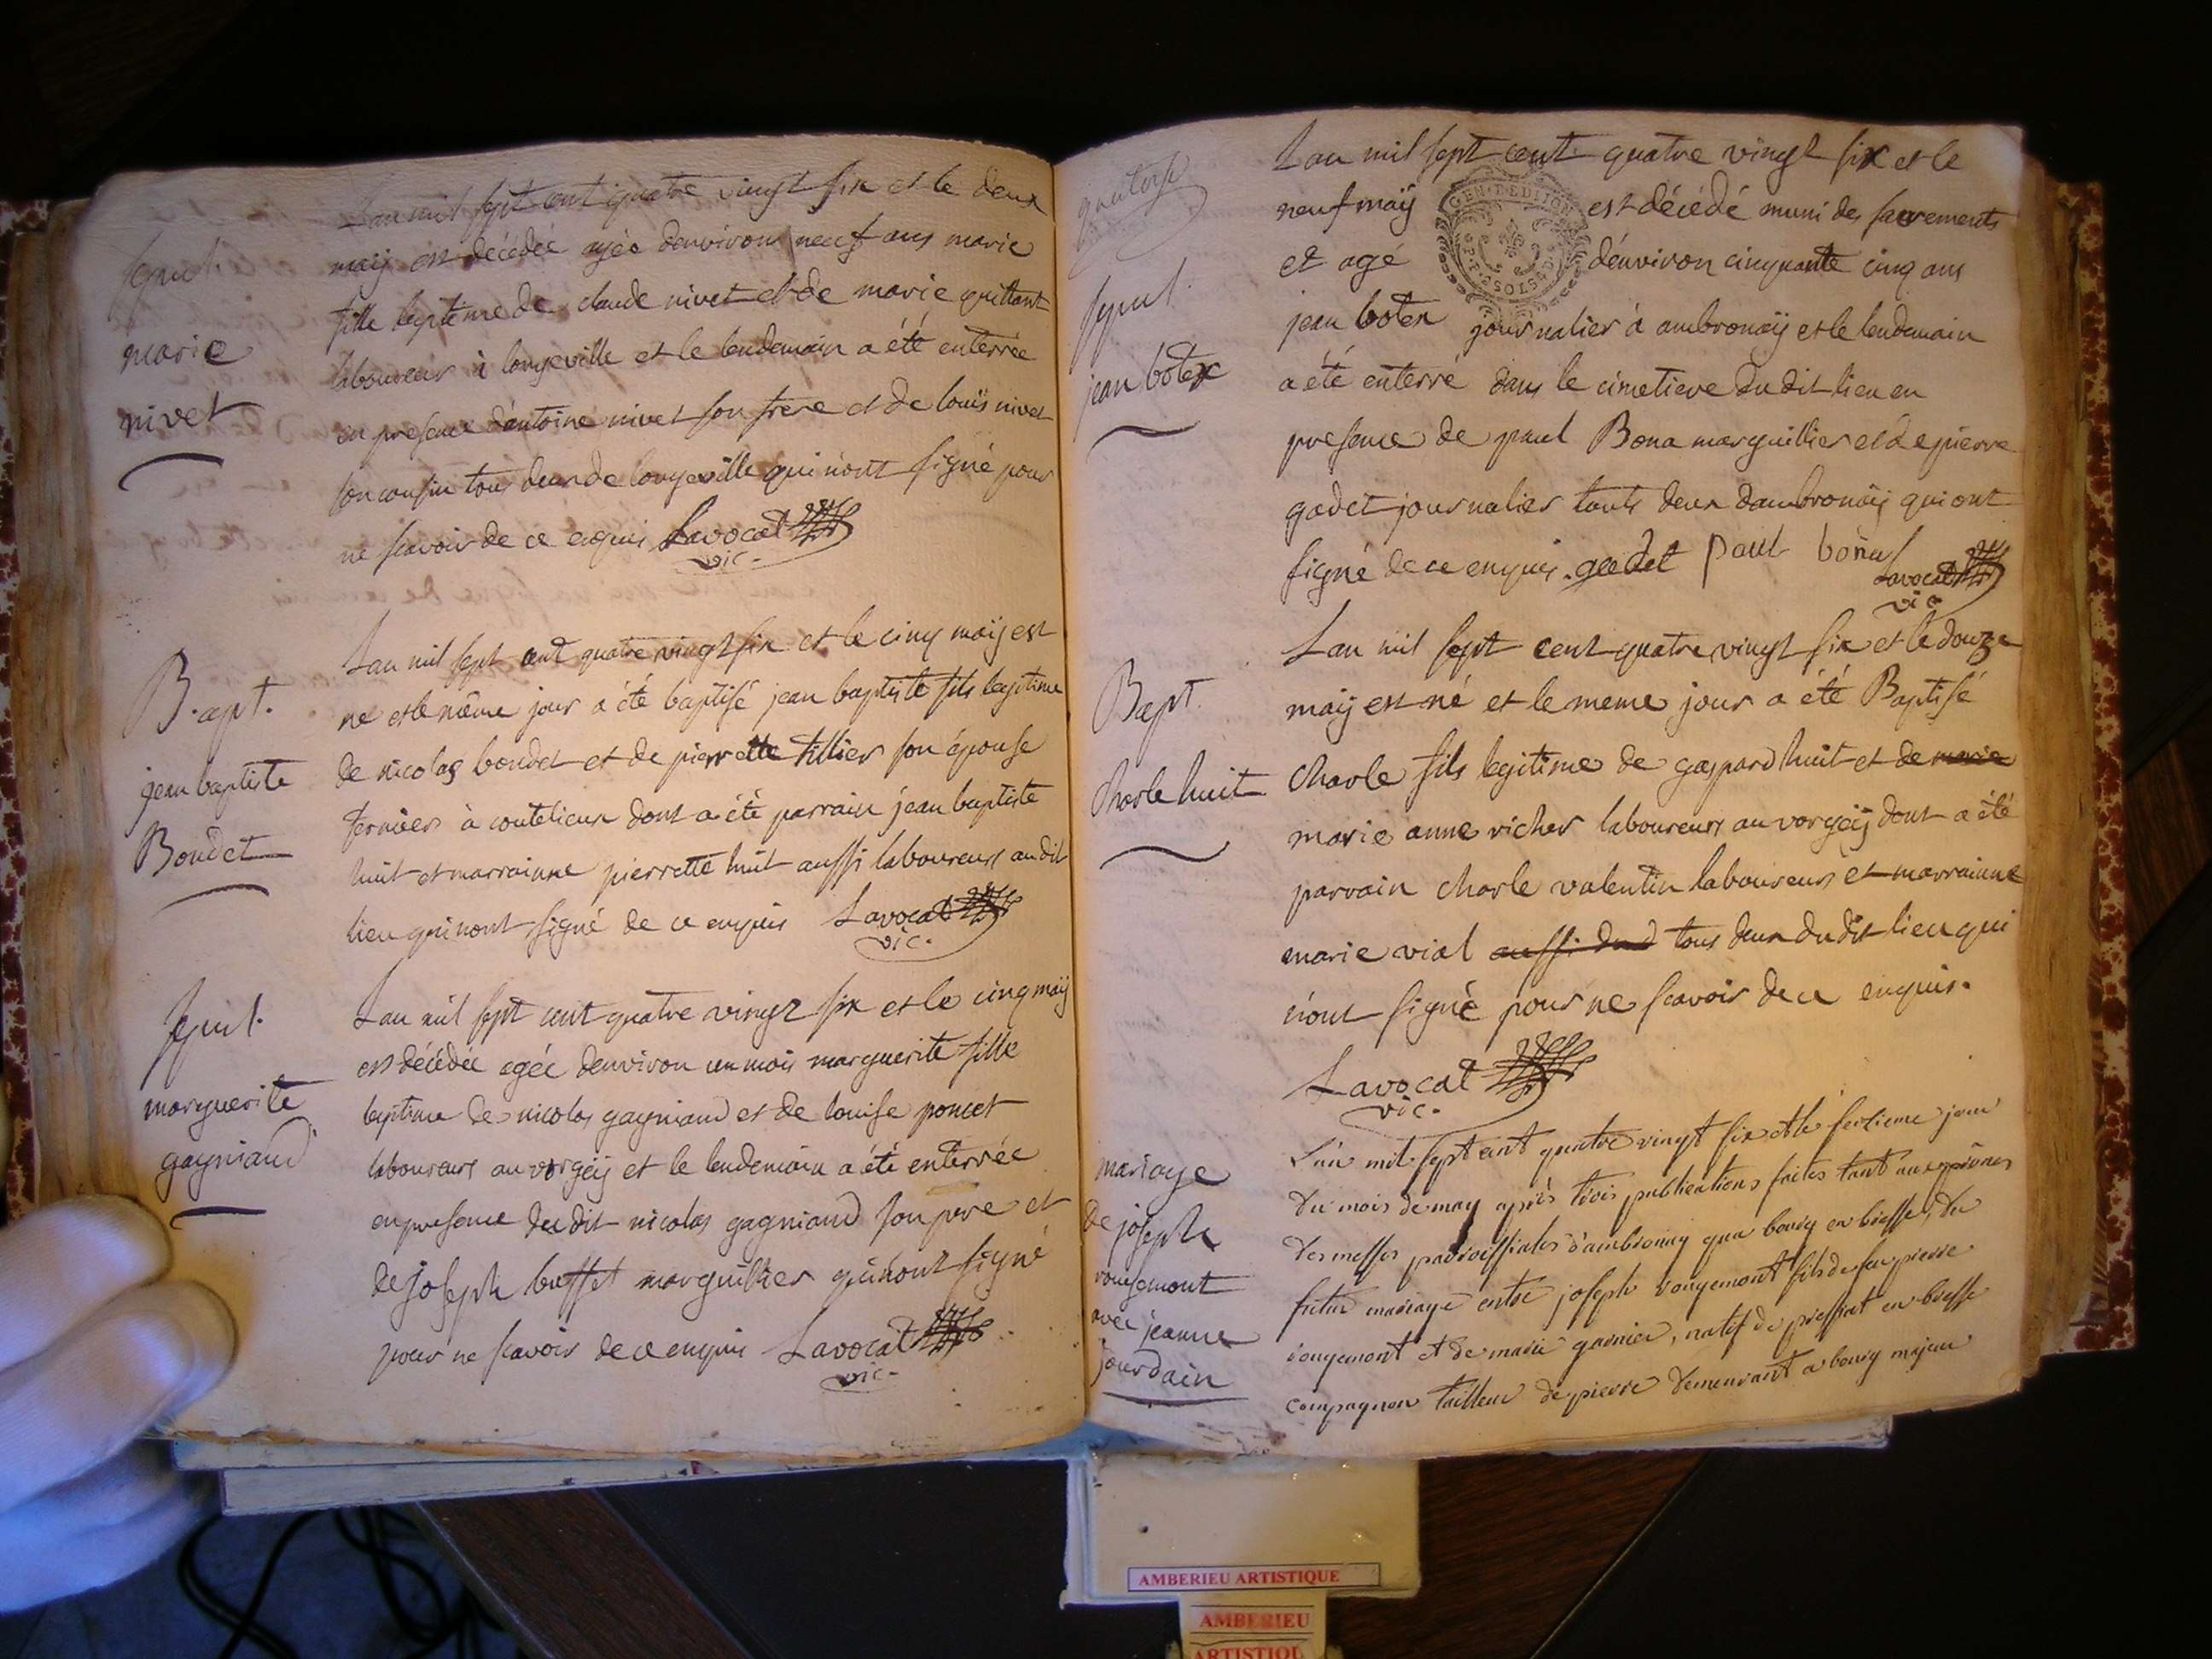 Sepul.
marie
nivet
Lan mil sept cent quatre vingt six et le deux
maij est décédée agée denviron neuf ans marie
fille legitime de claude nivet et de marie quittant
laboureur à longeville et le lendemain a été enterrée
en presence d'antoine nivet son frere et de louis nivet
son cousin tous deux de longeville qui n'ont signé pour
ne scavoir de ce enquis Lavocat
vic.
Bapt.
jean baptiste
Boudet
Lan mil sept cent quatre vingt six et le cinq maij est
né et le même jour a été baptisé jean baptiste fils legitime
de nicolas boudet et de pierrette tillier son épouse
fermiers à coutelieux dont a été parrain jean baptiste
huit et marrainne pierrette huit aussi laboureurs audit
lieu qui n'ont signé de ce enquis Lavocat
vic.
Sepul.
marguerite
gagniaud
Lan mil sept cent quatre vingt six et le cinq maij
est décédée agée denviron un mois marguerite fille
legitime de nicolas gagniaud et de louise poncet
laboureurs au vorgeij et le lendemain a été enterrée
en presence du dit nicolas gagniaud son pere et
de joseph buffet marguillier qui n'ont signé
pour ne scavoir de ce enquis Lavocat
vic.
quatorse
Sepul.
jean botex
Lan mil sept cent quatre vingt six et le
neuf maij est décédé muni des sacrements
et agé dénviron cinquante cinq ans
jean botex journalier à ambronaij et le lendemain
a été enterré dans le cimetiere du dit lieu en
presence de paul Bona marguillier et de pierre
gadet journalier touts deux dambronaij qui ont
signé de ce enquis. gadet paul bona
Lavocat
vic
GEN. D.EDIT.ION
SOLS
Bapt.
Charle huit
Lan mil sept cent quatre vingt six et le douze
maij est né et le meme jour a été Baptisé
Charle fils legitime de gaspard huit et de marie
marie anne richer laboureurs au vorgeij dont a été
parrain charle valentin laboureur et marrainne
marie vial aussi dud tous deux du dit lieu qui
n'ont signé pour ne scavoir de ce enquis.
Lavocat
vic.
mariage
de joseph
rougemont
avec jeanne
jourdain
L'an mil sept cent quatre vingt six et le seizieme jour
du mois de may après trois publications faites tant aux prônes
des messes paroissiales d'ambronay qua bourg en bresse, du
futur mariage entre joseph rougemont fils de feu pierre
rougemont et de marie garnier, natif de pressiat en bresse
compagnon tailleur de pierre demeurant a bourg majeur
AMBERIEU ARTISTIQUE
AMBERIEU
ARTISTIQU